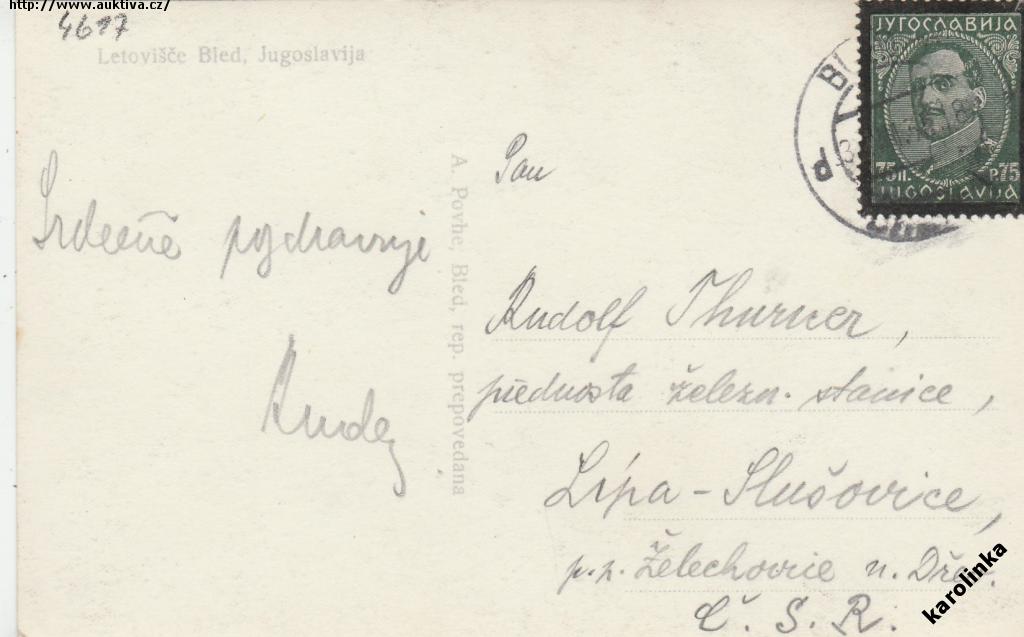 http://www.auktiva.cz/
4617
Letovišče Bled, Jugoslavija
Srdečně pozdravuje
A. Povhe, Bled, rep. prepovedana
ЈУГОСЛАВИЈА
75 П. P. 75
JUGOSLAVIJA
Pan
Rudolf Thurner,
přednosta železn. stanice,
Lípa - Slušovice,
p. p. Želechovice n. Dřev.
Č. S. R.
karolinka